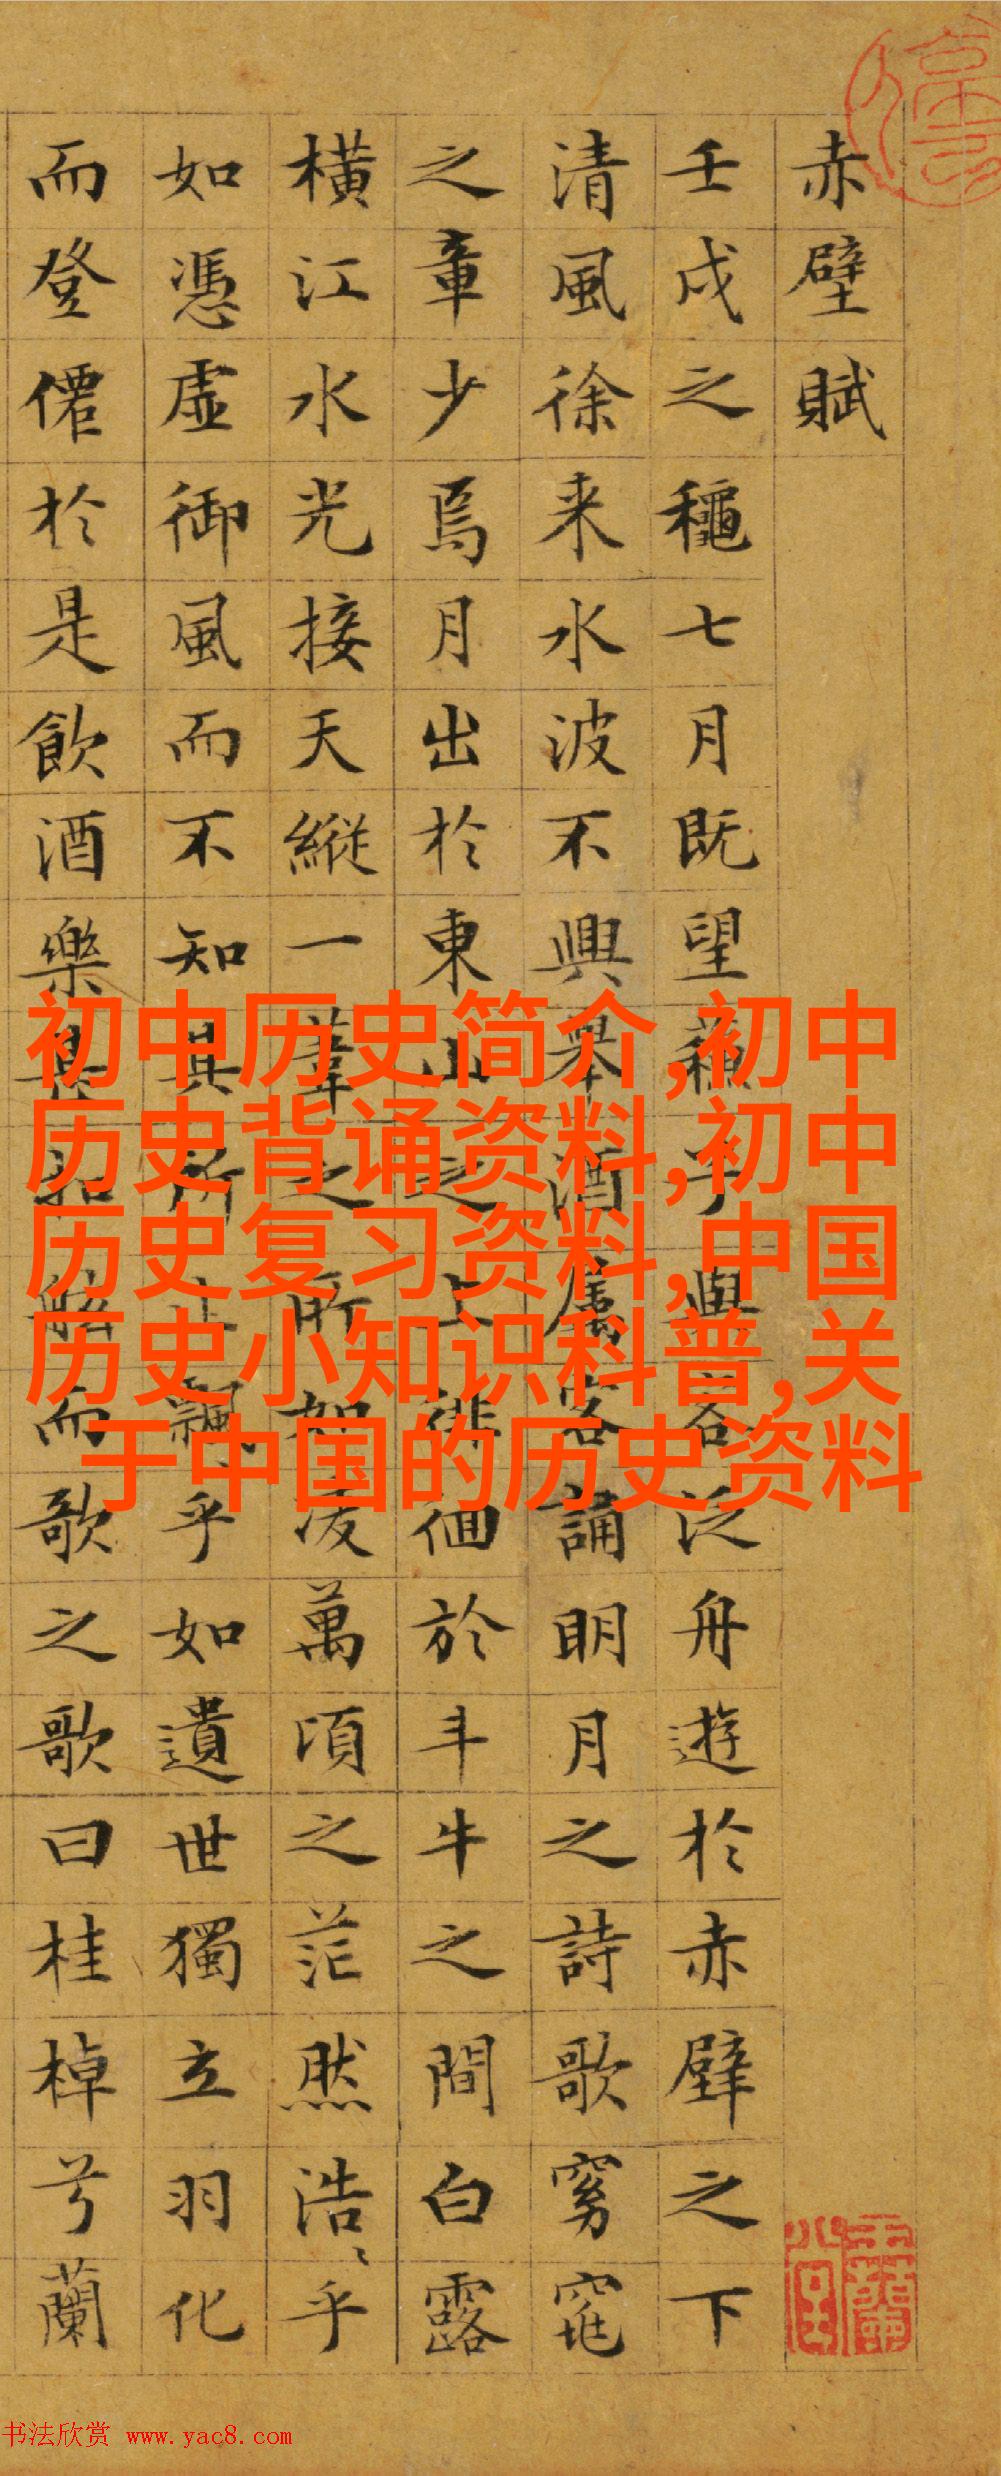 赤壁賦
壬戌之穐七月既望蘓子與客泛舟遊於赤壁之下
清風徐来水波不興舉酒属客誦明月之詩歌窈窕
之章少焉月出於東山之上徘徊於斗牛之間白露
橫江水光接天縱一葦之所如凌萬頃之茫然浩〻乎
如憑虛御風而不知其所止飄〻乎如遺世獨立羽化
而登僊於是飲酒樂甚扣舷而歌之歌曰桂棹兮蘭
初中历史简介,初中
历史背诵资料,初中
历史复习资料,中国
历史小知识科普,关
于中国的历史资料
书法欣赏 www.yac8.com